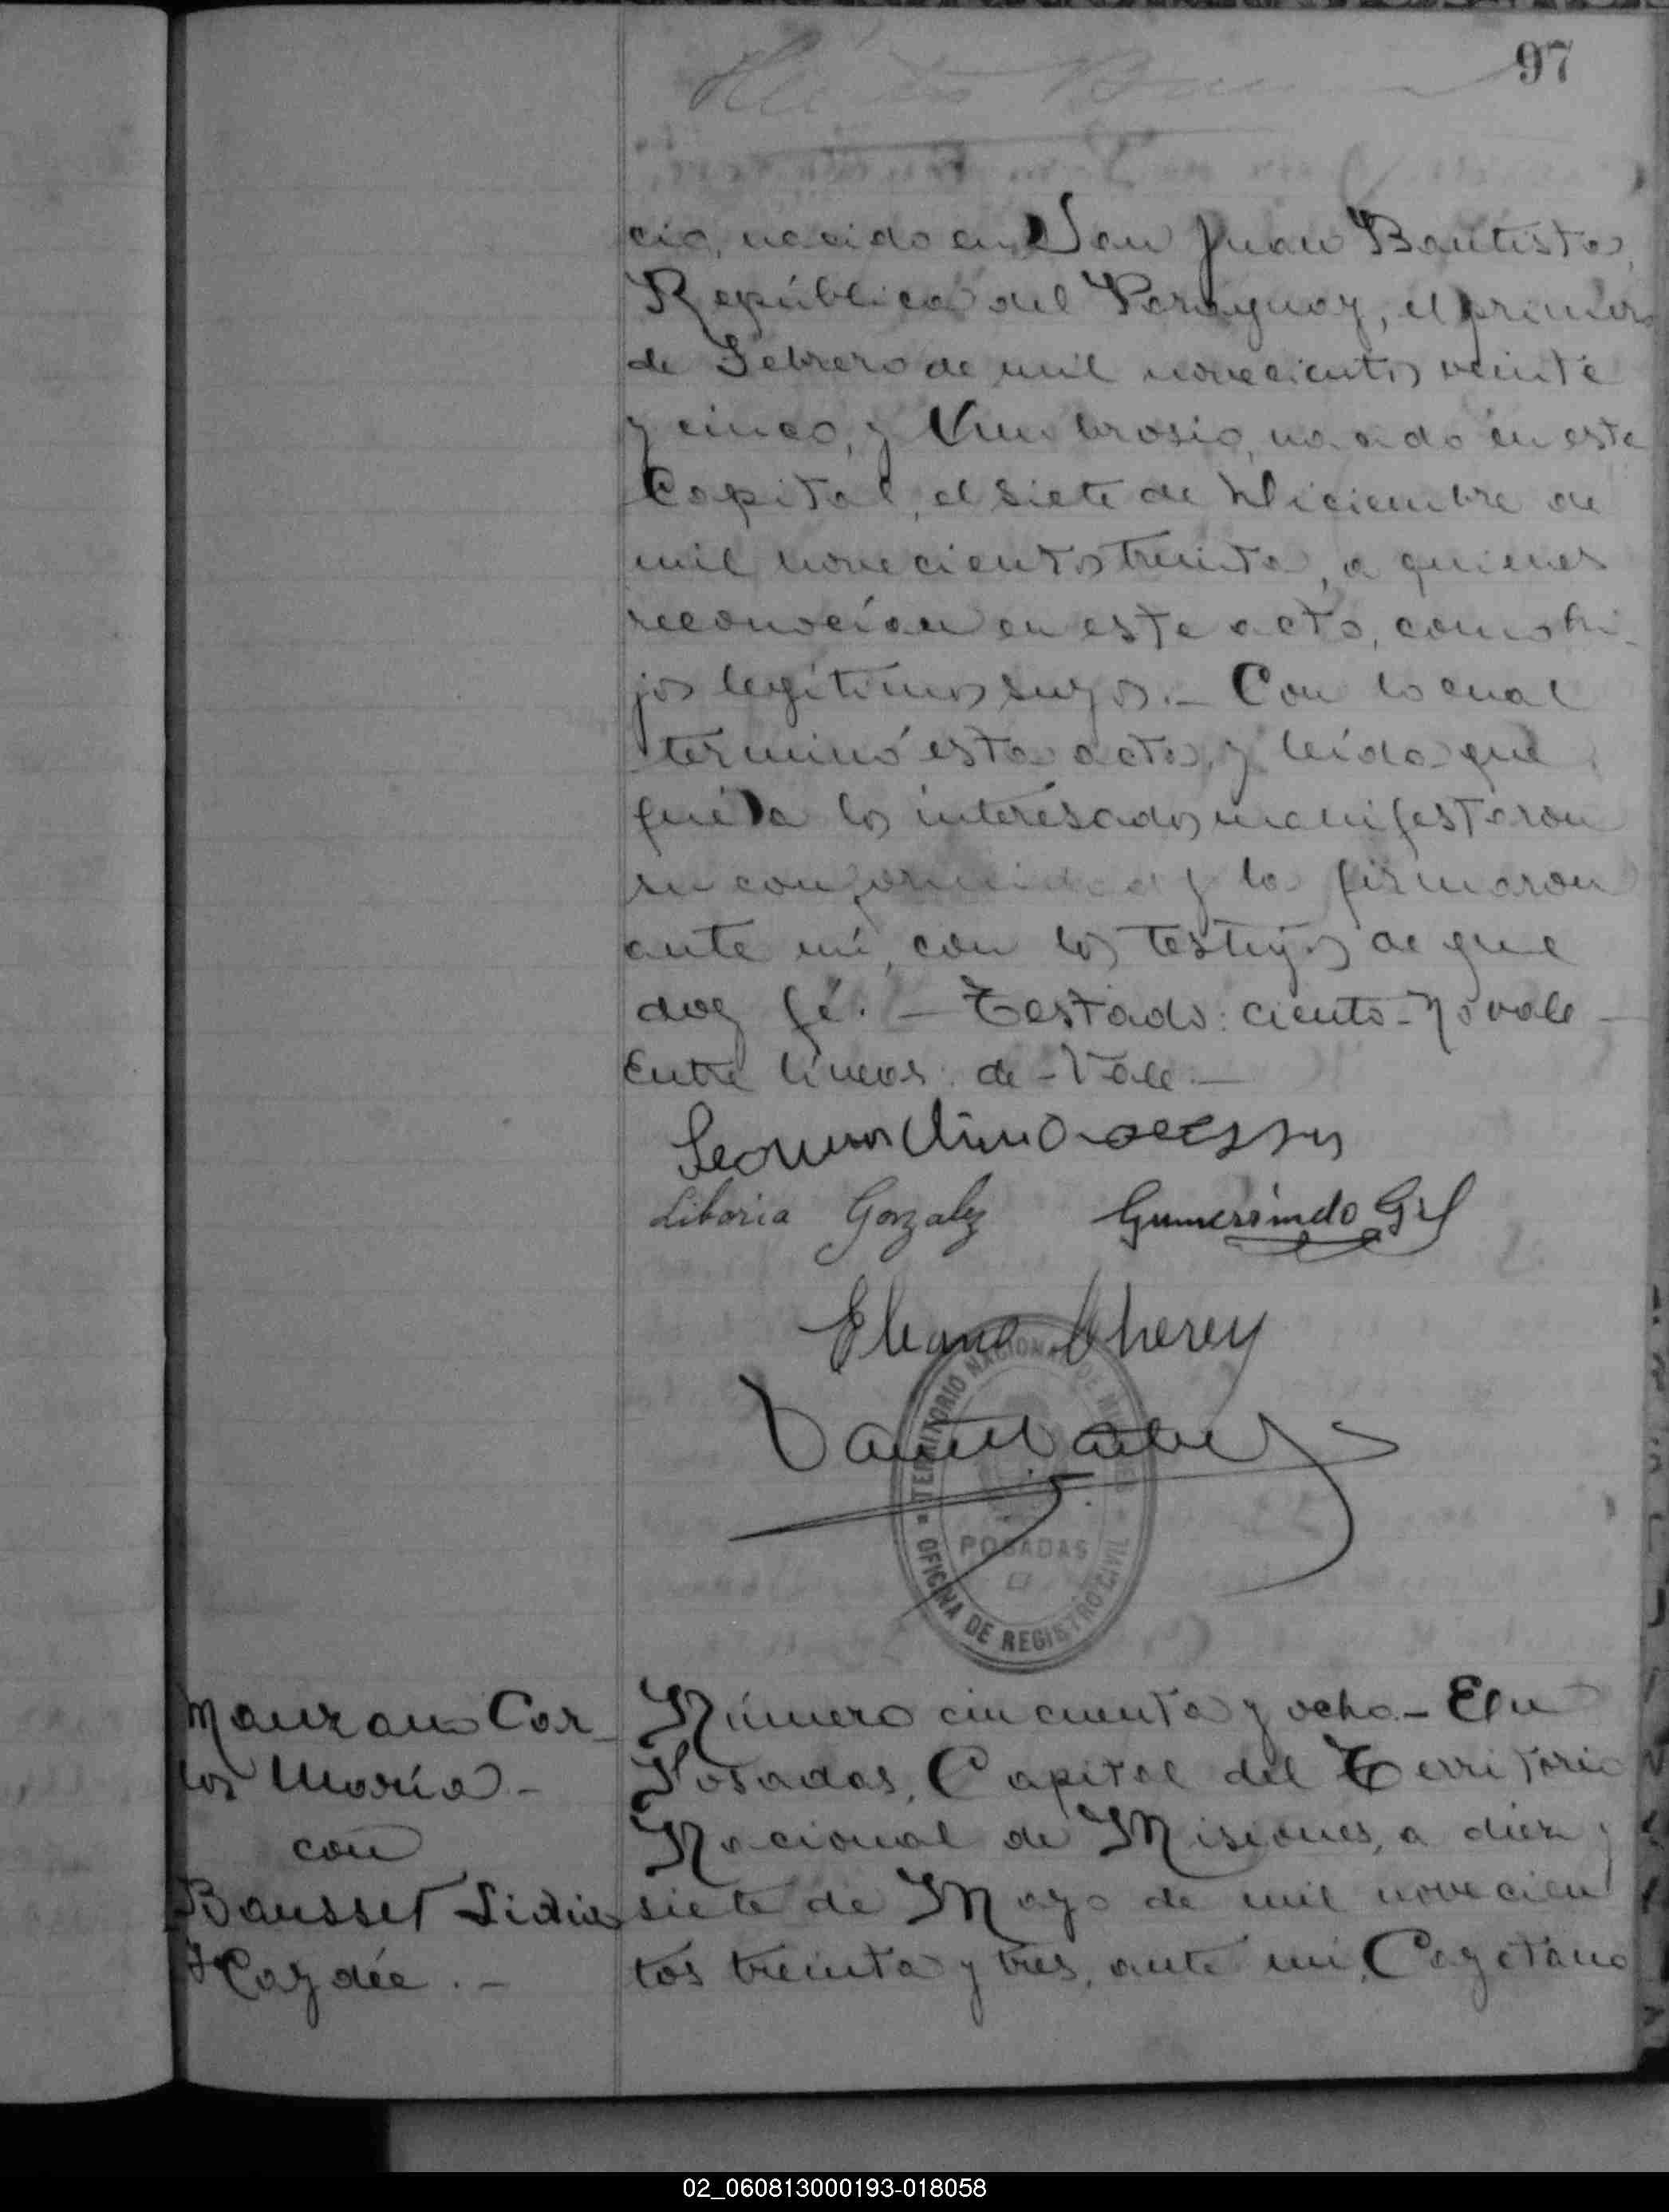 97
cio, nacido en San Juan Bautista,
República del Paraguay, el primero
de Febrero de mil novecientos veinte
y cinco, y Ambrosio, nacido en esta
Capital, el siete de Diciembre de
mil novecientos treinta, a quienes
reconocían en este acto, como hi-
jos legítimos suyos.- Con lo cual
terminó esta acta, y leída que
fué a los interesados manifestaron
su conformidad y la firmaron
ante mí, con los testigos de que
doy fé.- Testado: ciento - No vale -
Entre líneas: de - Vale.-
Liboria Gonzalez Gumersindo Gil
TERRITORIO NACIONAL DE MISIONES
POSADAS
OFICINA DE REGISTRO CIVIL
Manzano Car-
los María -
con
Bausset Lidia
Haydée.-
Número cincuenta y ocho.- En
Posadas, Capital del Territorio
Nacional de Misiones, a diez y
siete de Mayo de mil novecien
tos treinta y tres, ante mí, Cayetano
02_060813000193-018058